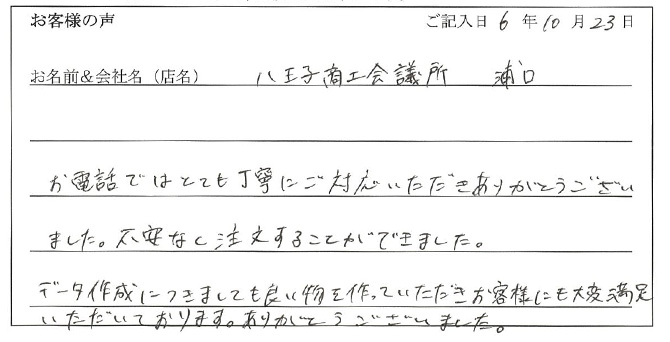 お客様の声 ご記入日 6 年 10 月 23 日
お名前&会社名（店名） 八王子商工会議所 浦口
お電話ではとても丁寧にご対応いただきありがとうござい
ました。不安なく注文することができました。
データ作成につきましても良い物を作っていただきお客様にも大変満足
いただいております。ありがとうございました。